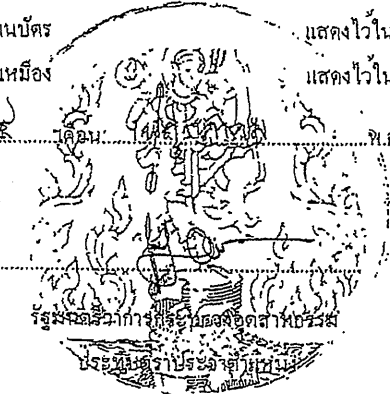 นบัตร แสดงไว้ใน
เหมือง แสดงไว้ใน
เดือน
รัฐมนตรีว่าการกระทรวงอุตสาหกรรม
ประทับตราประจำตำแหน่ง